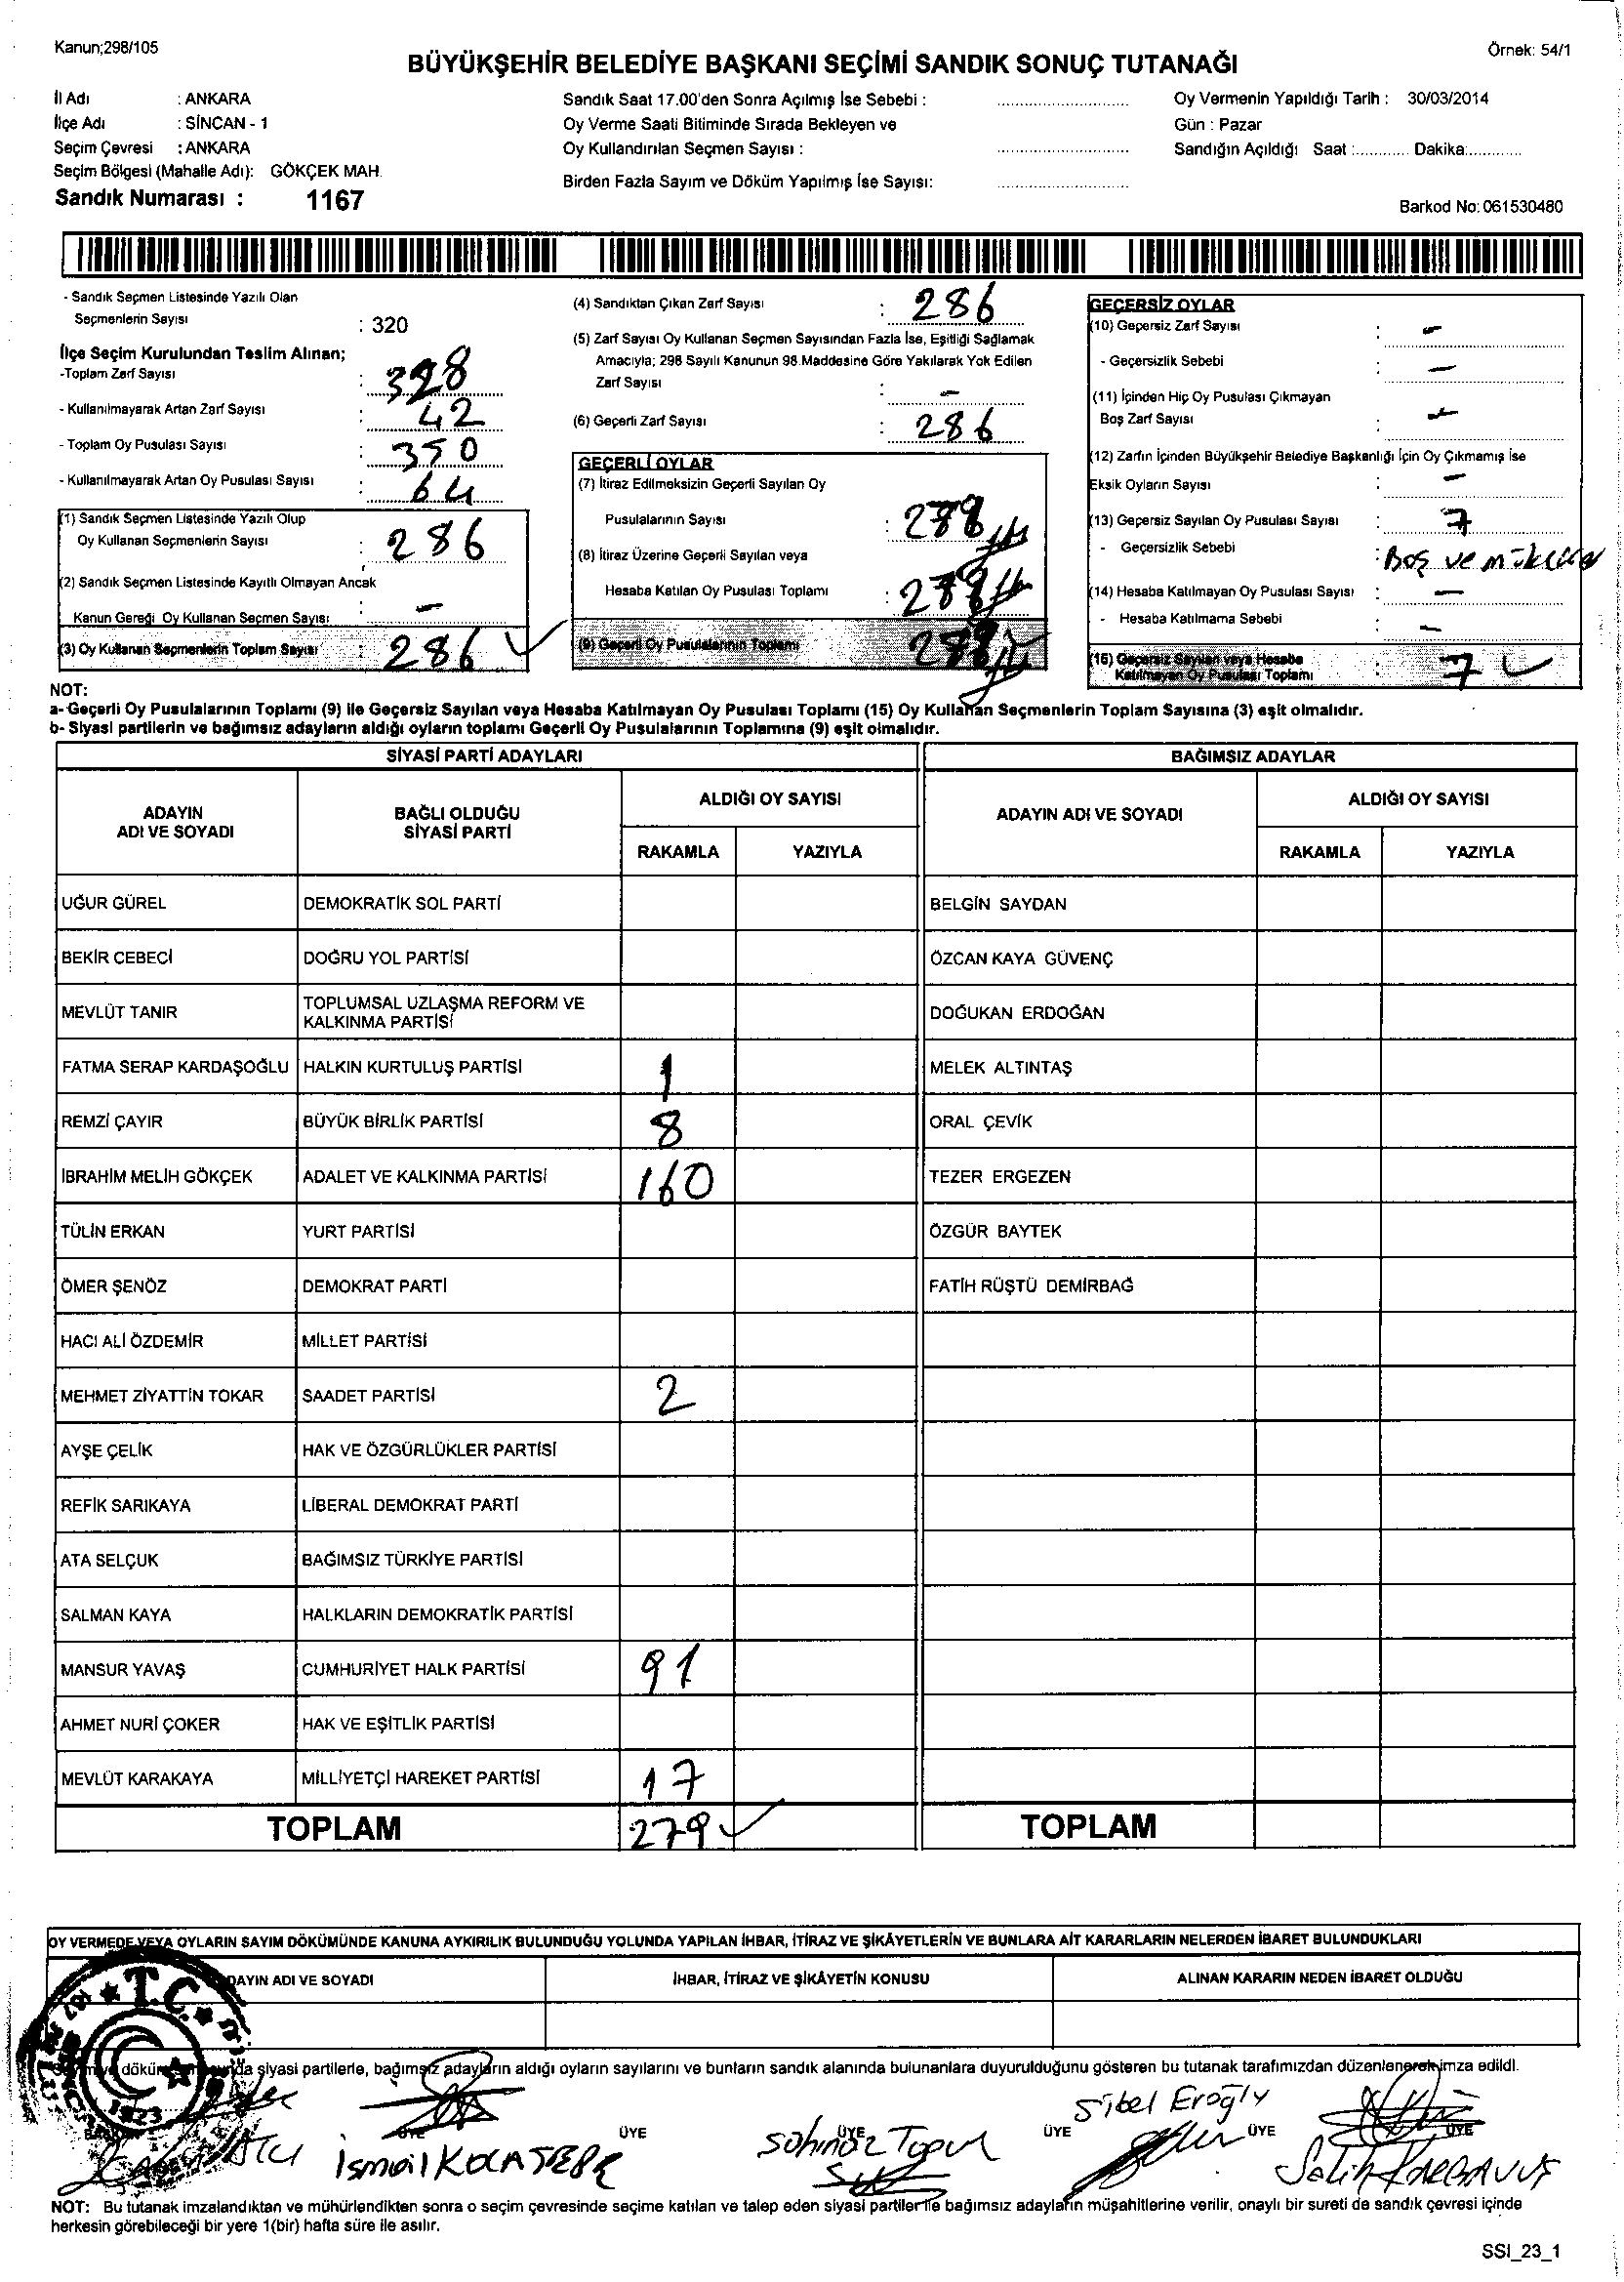 Kanun;298/105
Örnek: 54/1
BÜYÜKŞEHİR BELEDİYE BAŞKANI SEÇİMİ SANDIK SONUÇ TUTANAĞI
İl Adı : ANKARA
İlçe Adı : SİNCAN - 1
Seçim Çevresi : ANKARA
Seçim Bölgesi (Mahalle Adı): GÖKÇEK MAH.
Sandık Numarası : 1167
Sandık Saat 17.00'den Sonra Açılmış İse Sebebi :
Oy Verme Saati Bitiminde Sırada Bekleyen ve
Oy Kullandırılan Seçmen Sayısı :
Birden Fazla Sayım ve Döküm Yapılmış İse Sayısı:
Oy Vermenin Yapıldığı Tarih : 30/03/2014
Gün : Pazar
Sandığın Açıldığı Saat :............ Dakika:............
Barkod No: 061530480
- Sandık Seçmen Listesinde Yazılı Olan
Seçmenlerin Sayısı : 320
İlçe Seçim Kurulundan Teslim Alınan;
-Toplam Zarf Sayısı : 328
- Kullanılmayarak Artan Zarf Sayısı : 42
- Toplam Oy Pusulası Sayısı : 350
- Kullanılmayarak Artan Oy Pusulası Sayısı : 64
(1) Sandık Seçmen Listesinde Yazılı Olup
Oy Kullanan Seçmenlerin Sayısı : 286
(2) Sandık Seçmen Listesinde Kayıtlı Olmayan Ancak
Kanun Gereği Oy Kullanan Seçmen Sayısı: -
(3) Oy Kullanan Seçmenlerin Toplam Sayısı : 286
(4) Sandıktan Çıkan Zarf Sayısı : 286
(5) Zarf Sayısı Oy Kullanan Seçmen Sayısından Fazla İse, Eşitliği Sağlamak
Amacıyla; 298 Sayılı Kanunun 98.Maddesine Göre Yakılarak Yok Edilen
Zarf Sayısı : -
(6) Geçerli Zarf Sayısı : 286
GEÇERLİ OYLAR
(7) İtiraz Edilmeksizin Geçerli Sayılan Oy
Pusulalarının Sayısı :
(8) İtiraz Üzerine Geçerli Sayılan veya
Hesaba Katılan Oy Pusulası Toplamı :
(9) Geçerli Oy Pusulalarının Toplamı
GEÇERSİZ OYLAR
(10) Geçersiz Zarf Sayısı : -
- Geçersizlik Sebebi : -
(11) İçinden Hiç Oy Pusulası Çıkmayan
Boş Zarf Sayısı : -
(12) Zarfın İçinden Büyükşehir Belediye Başkanlığı İçin Oy Çıkmamış İse
Eksik Oyların Sayısı : -
(13) Geçersiz Sayılan Oy Pusulası Sayısı : 7
- Geçersizlik Sebebi : Boş ve
(14) Hesaba Katılmayan Oy Pusulası Sayısı : -
- Hesaba Katılmama Sebebi : -
(15) Geçersiz Sayılan veya Hesaba
Katılmayan Oy Pusulası Toplamı : 7
NOT:
a- Geçerli Oy Pusulalarının Toplamı (9) ile Geçersiz Sayılan veya Hesaba Katılmayan Oy Pusulası Toplamı (15) Oy Kullanan Seçmenlerin Toplam Sayısına (3) eşit olmalıdır.
b- Siyasi partilerin ve bağımsız adayların aldığı oyların toplamı Geçerli Oy Pusulalarının Toplamına (9) eşit olmalıdır.
SİYASİ PARTİ ADAYLARI
BAĞIMSIZ ADAYLAR
ADAYIN
ADI VE SOYADI
BAĞLI OLDUĞU
SİYASİ PARTİ
ALDIĞI OY SAYISI
RAKAMLA YAZIYLA
ADAYIN ADI VE SOYADI
ALDIĞI OY SAYISI
RAKAMLA YAZIYLA
UĞUR GÜREL DEMOKRATİK SOL PARTİ BELGİN SAYDAN
BEKİR CEBECİ DOĞRU YOL PARTİSİ ÖZCAN KAYA GÜVENÇ
MEVLÜT TANIR TOPLUMSAL UZLAŞMA REFORM VE
KALKINMA PARTİSİ DOĞUKAN ERDOĞAN
FATMA SERAP KARDAŞOĞLU HALKIN KURTULUŞ PARTİSİ 1 MELEK ALTINTAŞ
REMZİ ÇAYIR BÜYÜK BİRLİK PARTİSİ 8 ORAL ÇEVİK
İBRAHİM MELİH GÖKÇEK ADALET VE KALKINMA PARTİSİ 160 TEZER ERGEZEN
TÜLİN ERKAN YURT PARTİSİ ÖZGÜR BAYTEK
ÖMER ŞENÖZ DEMOKRAT PARTİ FATİH RÜŞTÜ DEMİRBAĞ
HACI ALİ ÖZDEMİR MİLLET PARTİSİ
MEHMET ZİYATTİN TOKAR SAADET PARTİSİ 2
AYŞE ÇELİK HAK VE ÖZGÜRLÜKLER PARTİSİ
REFİK SARIKAYA LİBERAL DEMOKRAT PARTİ
ATA SELÇUK BAĞIMSIZ TÜRKİYE PARTİSİ
SALMAN KAYA HALKLARIN DEMOKRATİK PARTİSİ
MANSUR YAVAŞ CUMHURİYET HALK PARTİSİ 91
AHMET NURİ ÇOKER HAK VE EŞİTLİK PARTİSİ
MEVLÜT KARAKAYA MİLLİYETÇİ HAREKET PARTİSİ 17
TOPLAM 279 TOPLAM
OY VERMEDE VEYA OYLARIN SAYIM DÖKÜMÜNDE KANUNA AYKIRILIK BULUNDUĞU YOLUNDA YAPILAN İHBAR, İTİRAZ VE ŞİKÂYETLERİN VE BUNLARA AİT KARARLARIN NELERDEN İBARET BULUNDUKLARI
ADAYIN ADI VE SOYADI İHBAR, İTİRAZ VE ŞİKÂYETİN KONUSU ALINAN KARARIN NEDEN İBARET OLDUĞU
T.C.
1923
siyasi partilerle, bağımsız adayların aldığı oyların sayılarını ve bunların sandık alanında bulunanlara duyurulduğunu gösteren bu tutanak tarafımızdan düzenlenerek imza edildi.
Sibel Eroğlu
ÜYE ÜYE ÜYE ÜYE ÜYE ÜYE
İsmail KOCATEPE Şahinöz Topul Salih KARGAVUŞ
NOT: Bu tutanak imzalandıktan ve mühürlendikten sonra o seçim çevresinde seçime katılan ve talep eden siyasi partiler ile bağımsız adayların müşahitlerine verilir, onaylı bir sureti de sandık çevresi içinde
herkesin görebileceği bir yere 1(bir) hafta süre ile asılır.
SSI_23_1